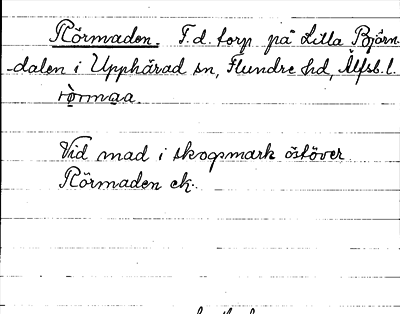 Rörmaden. T. d. torp på Lilla Björn-
dalen i Upphärad sn, Flundre hd, Älfsb. l.
rörmaa.
Vid mad i skogsmark östöver
Rörmaden ek.